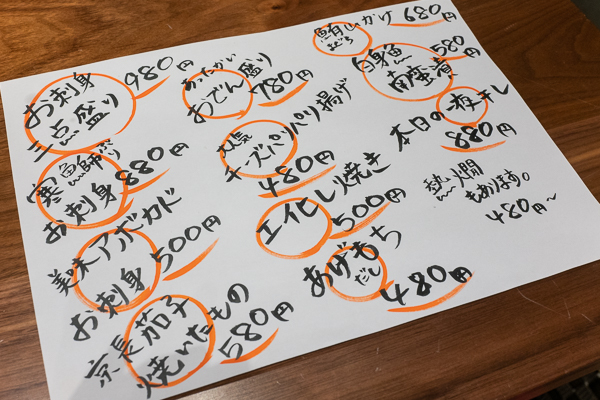 お刺身
三点盛り
980円
寒鰤ぶり
お刺身
880円
美味アボカド
お刺身
500円
京長茄子
焼いたもの
580円
あったかい
おでん盛り
780円
チーズパリパリ揚げ
480円
エイヒレ焼き
500円
あげもち
だし
480円
鮪山かけ
680円
白身魚
南蛮漬
580円
本日の一夜干し
880円
熱燗
もあります。
480円～